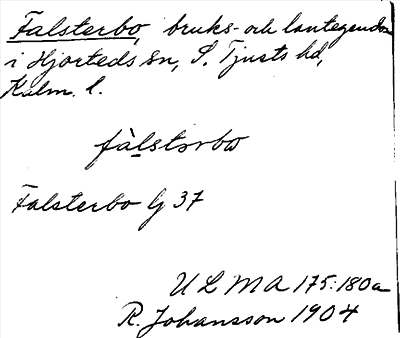 Falsterbo, bruks- och lantegendom
i Hjorteds sn, S. Tjusts hd,
Kalm. l.
fàlstərbω
Falsterbo Gj 37
ULMA 175:180a
R. Johansson 1904